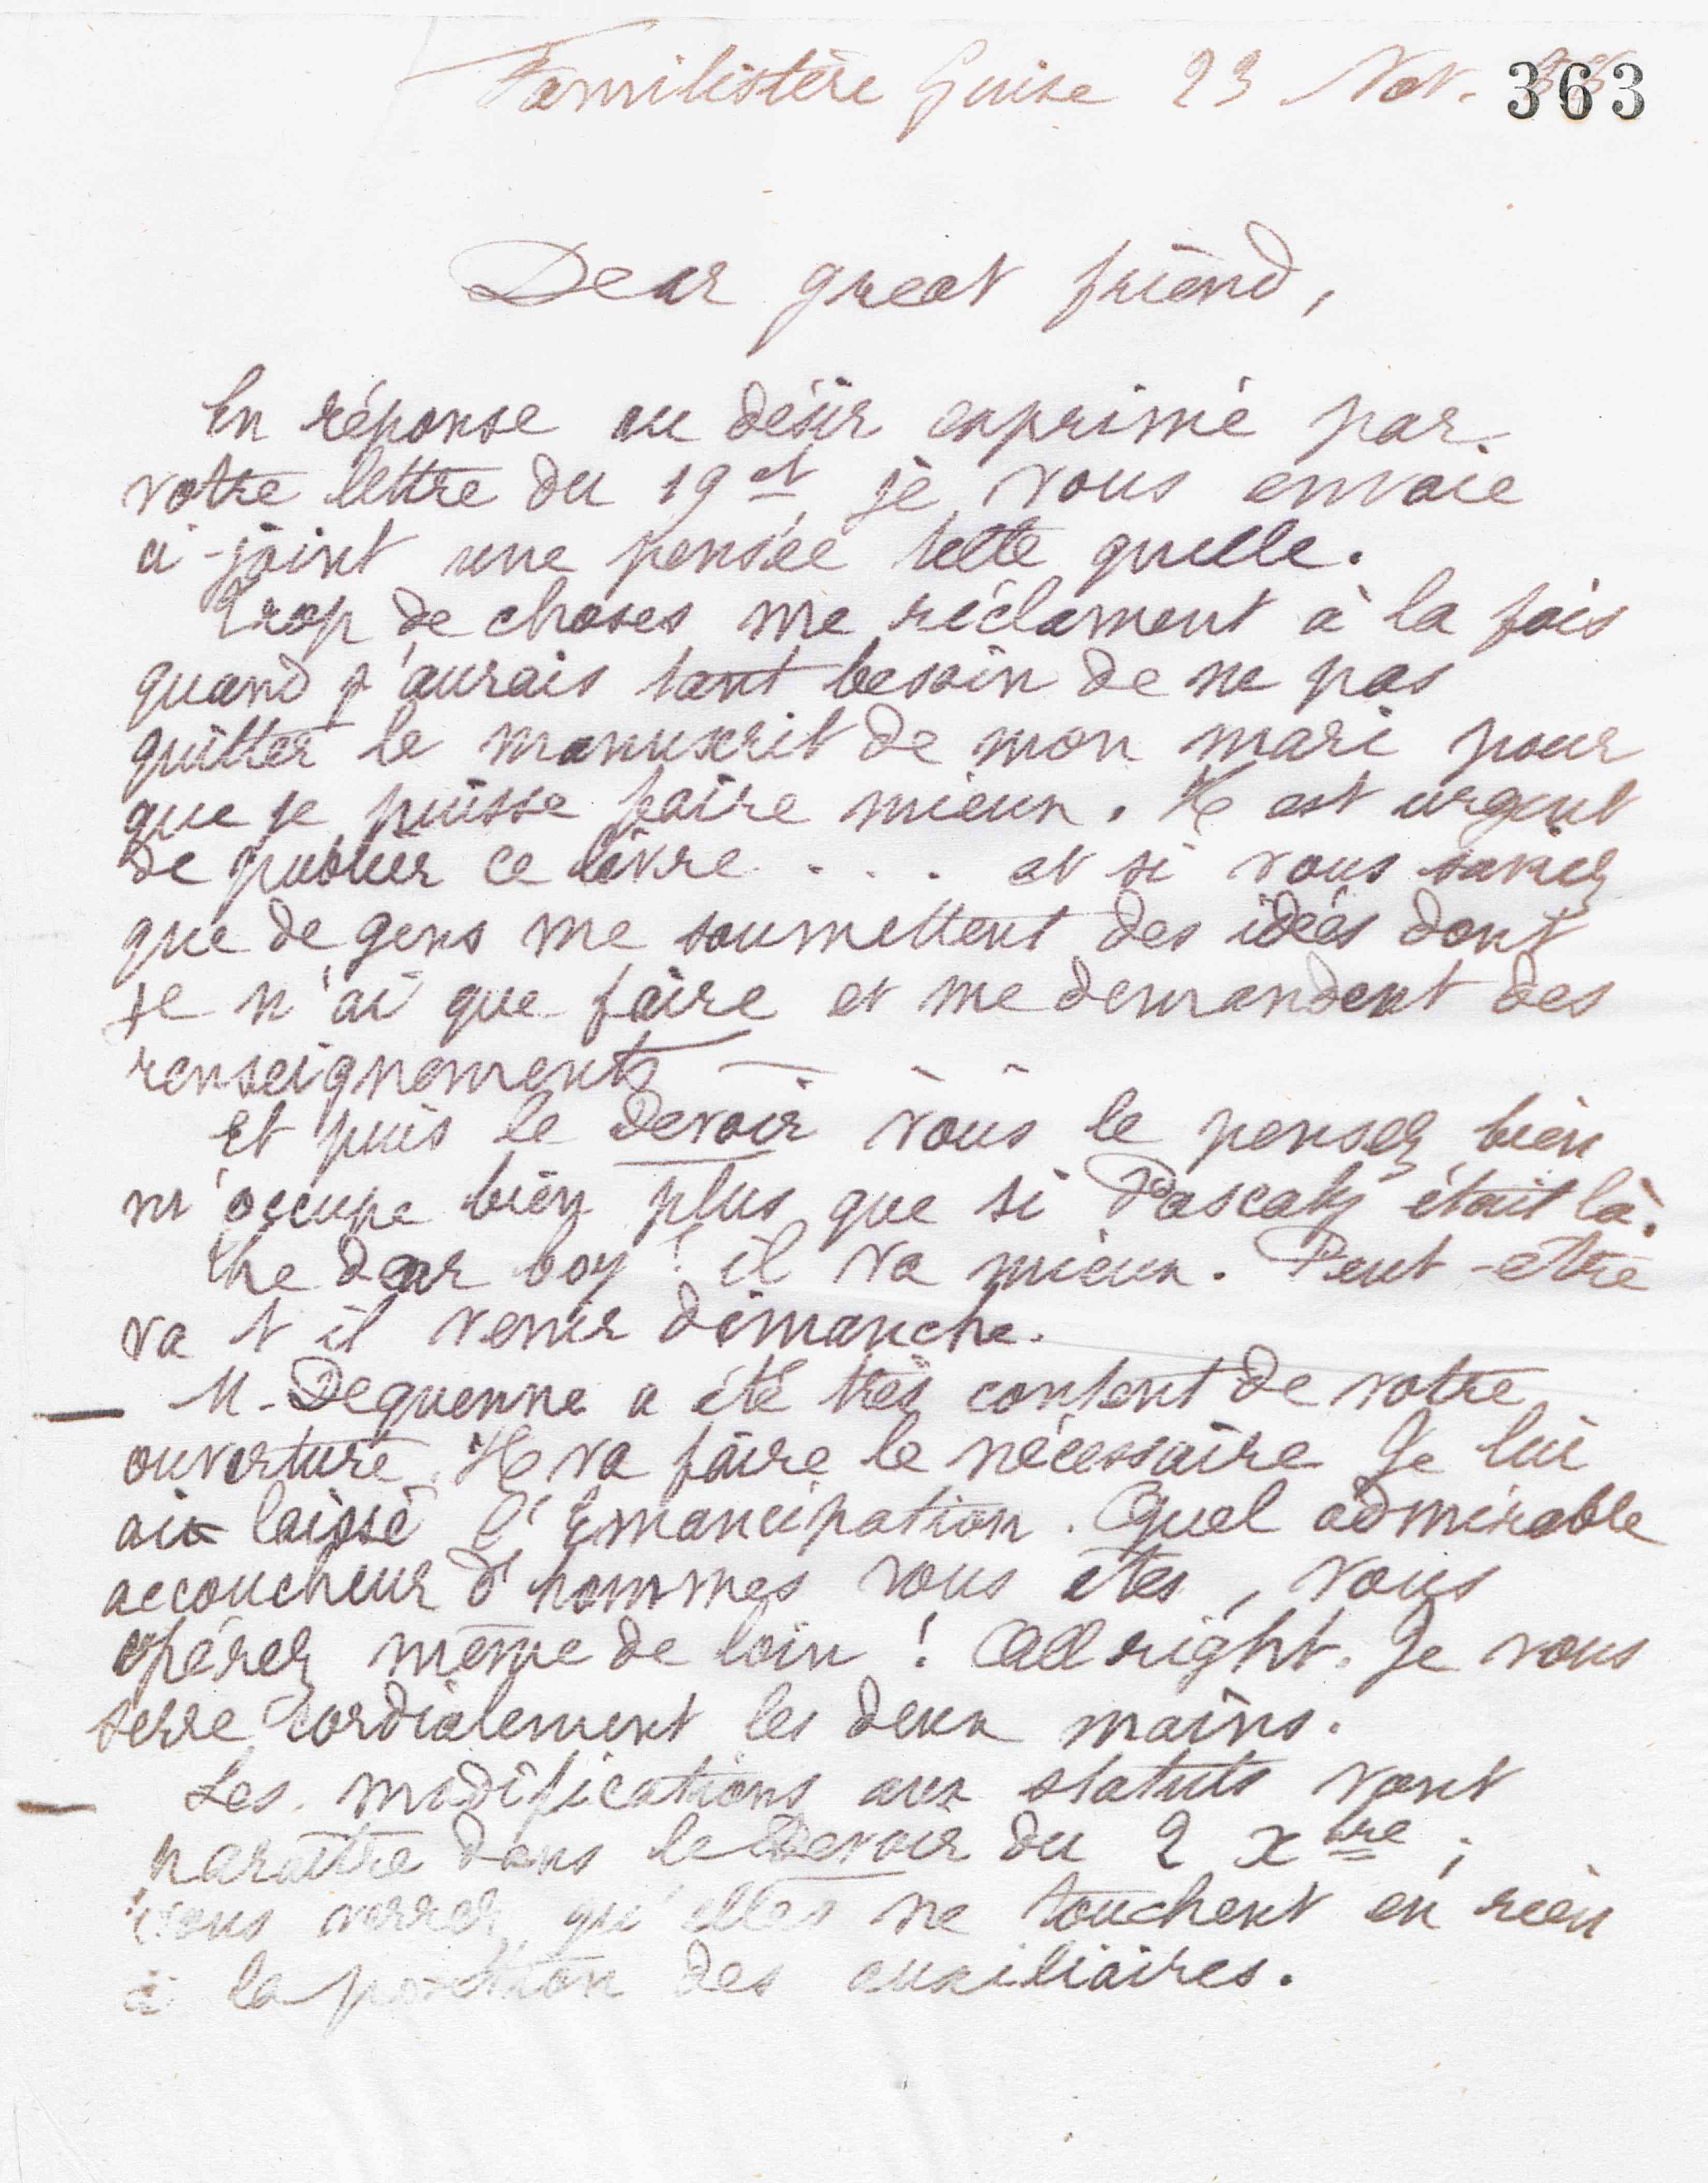 Familistère Guise 23 Nov. 363
Dear great friend,
En réponse au désir exprimé par
votre lettre du 19 et, je vous envoie
ci-joint une pensée telle quelle.
Trop de choses me réclament à la fois
quand j'aurais tant besoin de ne pas
quitter le manuscrit de mon mari pour
que je puisse faire mieux. Il est urgent
de publier ce livre . . . et si vous saviez
que de gens me soumettent des idées dont
je n'ai que faire et me demandent des
renseignements - - -
Et puis le Devoir vous le pensez bien
m'occupe bien plus que si Pascaly était là.
The dear boy! il va mieux. Peut-être
va t il venir dimanche.
— M. Dequenne a été très content de votre
ouverture. Il va faire le nécessaire Je lui
ai laissé l'Emancipation. Quel admirable
accoucheur d'hommes vous êtes, vous
opérez même de loin ! All right. Je vous
serre cordialement les deux mains.
— Les modifications aux statuts vont
paraître dans le Devoir du 2 Xbre ;
vous verrez qu'elles ne touchent en rien
à la position des auxiliaires.